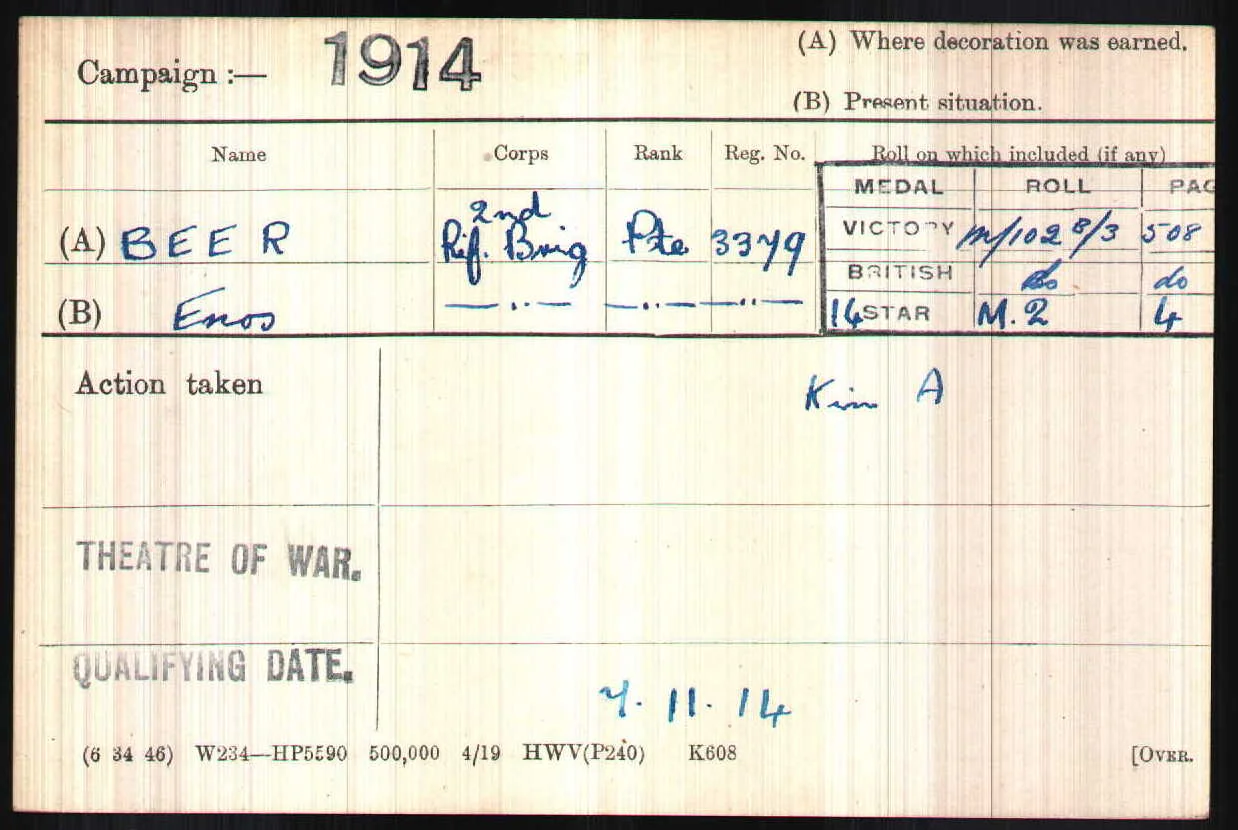 Campaign :— 1914
(A) Where decoration was earned.
(B) Present situation.
Name Corps Rank Reg. No. Roll on which included (if any)
MEDAL ROLL PAG
(A) BEER 2nd Rif. Brig Pte 3379 VICTORY M/102 B/3 508
BRITISH do do
(B) Enos —..— —..— —..— 14 STAR M.2 4
Action taken
K in A
THEATRE OF WAR.
QUALIFYING DATE.
7. 11. 14
(6 34 46) W234—HP5590 500,000 4/19 HWV(P240) K608 [OVER.